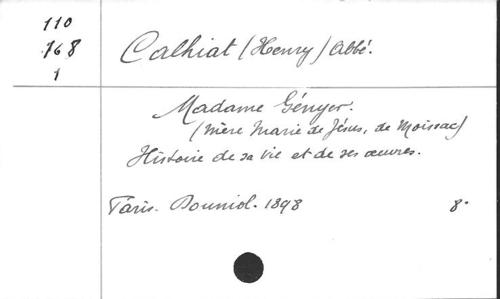 110
768
1
Calhiat (Henry) Abbé.
Madame Gényer.
(Mère Marie de Jésus, de Moissac)
Histoire de sa vie et de ses œuvres.
Paris. Douniol. 1898 8°